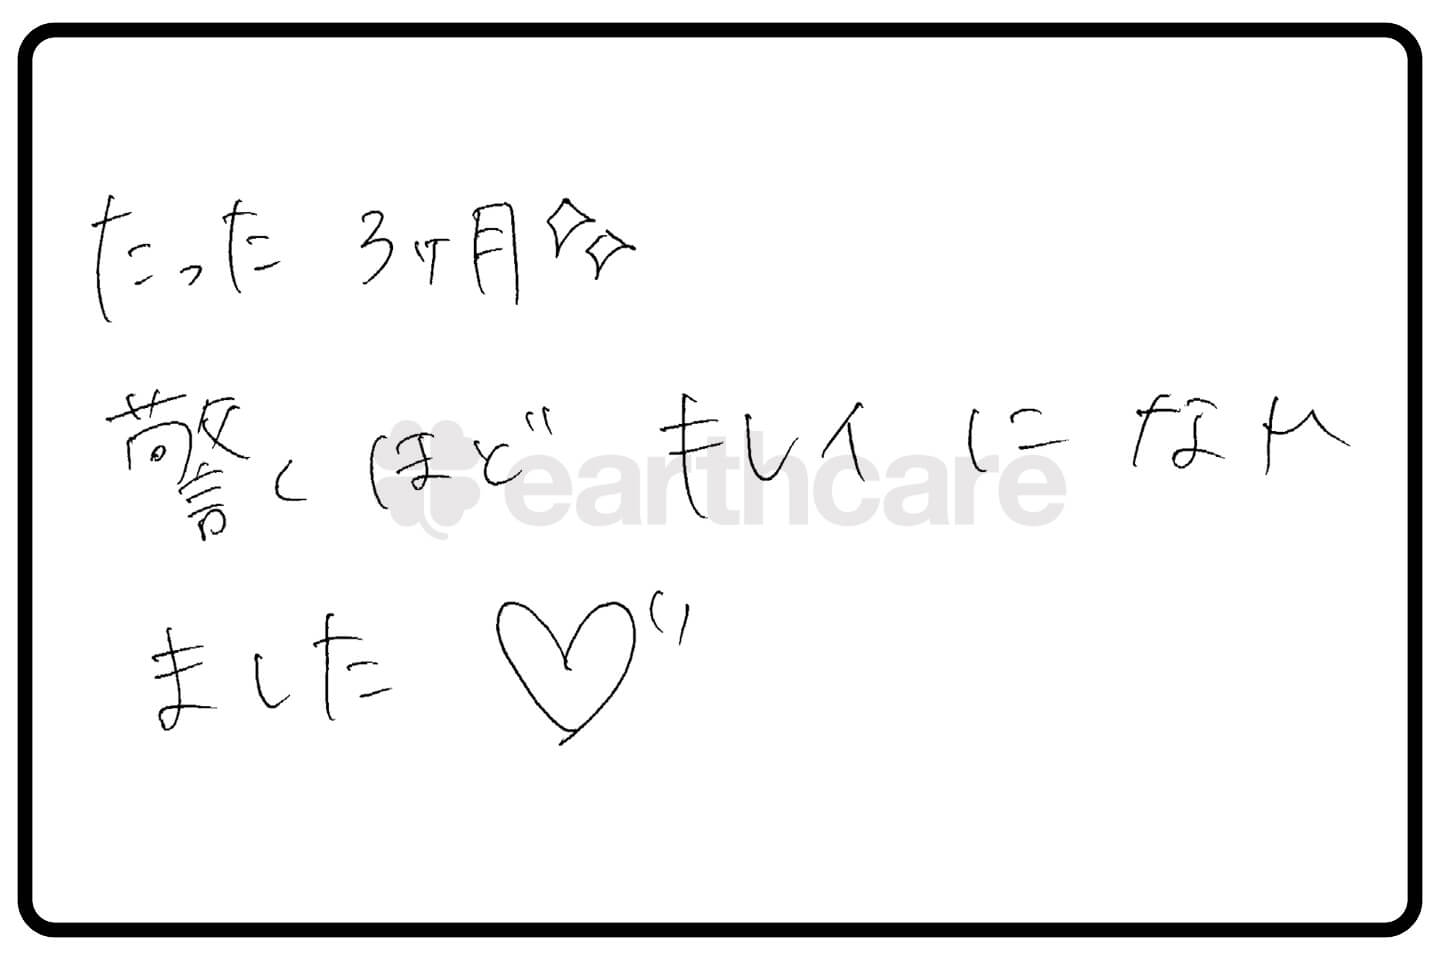 たった 3ヶ月
警くほど キレイ になれ
ました♡
earthcare